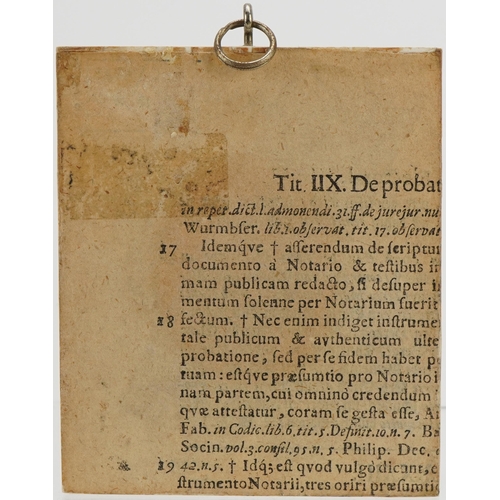 Tit. IIX. De probat
in repet. dict. l. admonendi. 31. ff. de jurejur. nu
Wurmbser. lib. 1. observat. tit. 17. observat
17 Idemqve † asserendum de scriptur
documento à Notario & testibus in
mam publicam redacto, si desuper in
mentum solenne per Notarium fuerit
fectum.
18 † Nec enim indiget instrumen
tale publicum & avthenticum ulte
probatione, sed per se fidem habet pe
tuam: estqve præsumtio pro Notario i
nam partem, cui omnino credendum
qvæ attestatur, coram se gesta esse, A
Fab. in Codic. lib. 6. tit. 5. Definit. 10. n. 7. Ba
Socin. vol. 3. consil. 95. n. 5. Philip. Dec. c
19 42. n. 5. † Idq; est qvod vulgò dicunt, e
strumento Notarii, tres oriri præsumtio